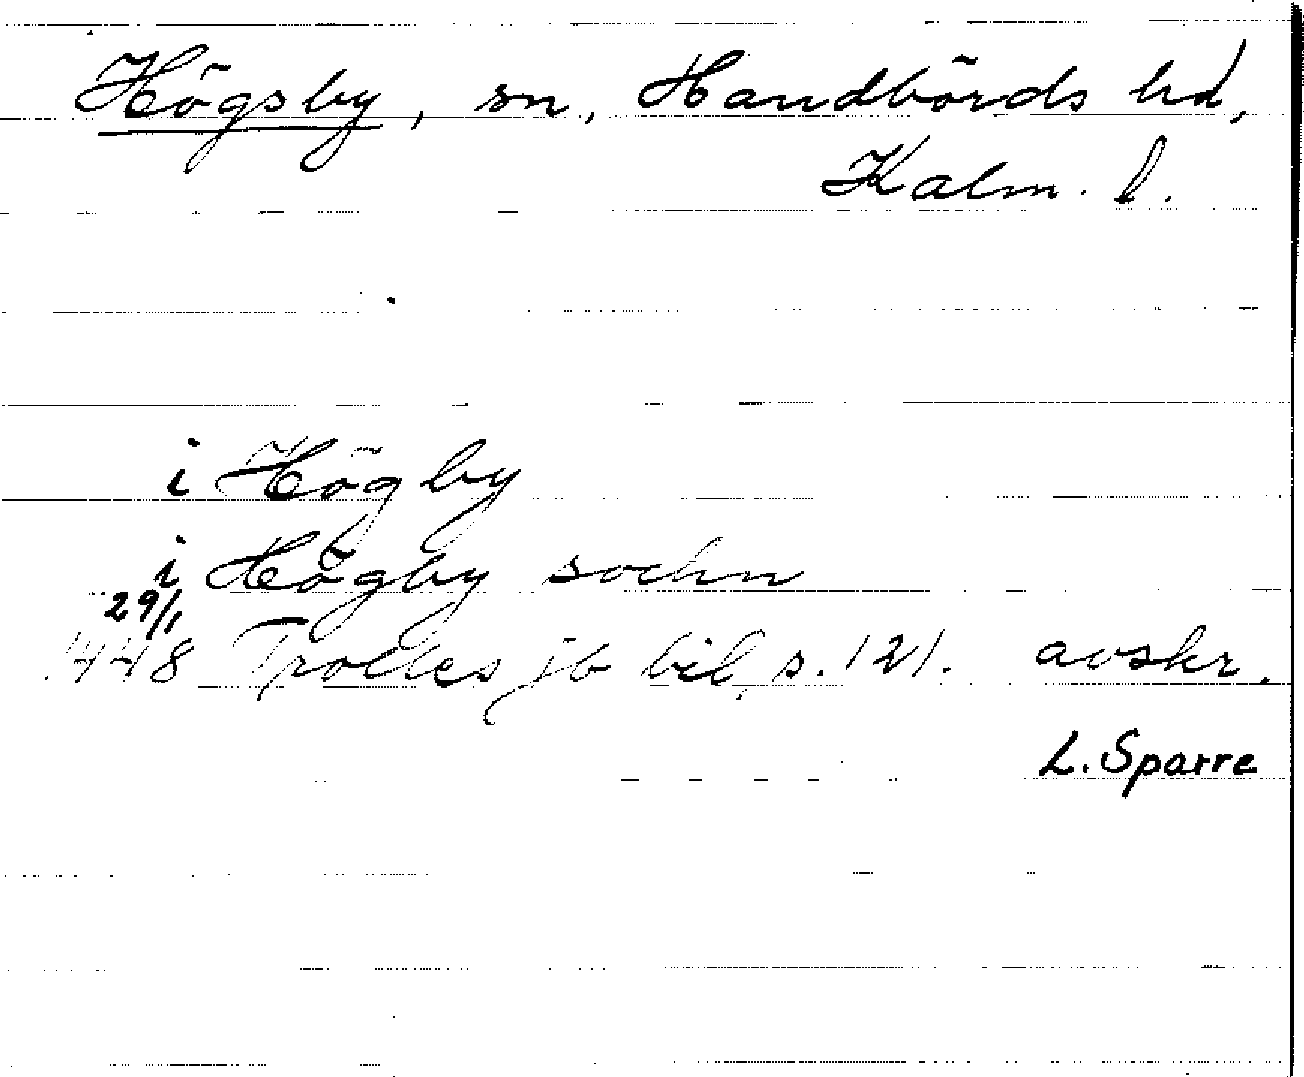 Högsby, sn, Handbörds hd,
Kalm. l.
i Högby
i Högby sochn
29/1
1448 Trolles jb bil, s. 121. avskr.
L. Sparre